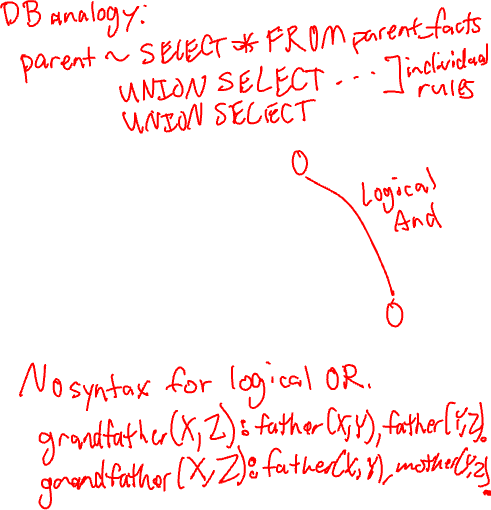 DB analogy:
parent ~ SELECT * FROM parent_facts
UNION SELECT ... ] individual
UNION SELECT rules
Logical
And
No syntax for logical OR.
grandfather(X,Z): father(X,Y), father(Y,Z).
grandfather(X,Z): father(X,Y), mother(Y,Z).